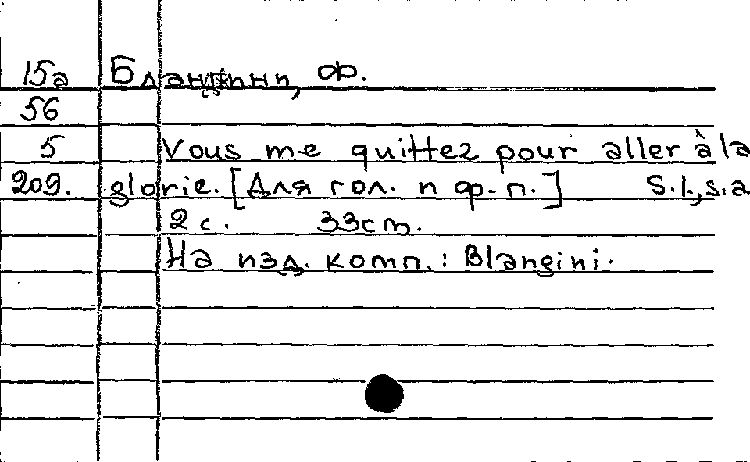 15а Бланжини, Ф.
56
5 Vous me quittez pour aller à la
209. glorie. [Для гол. и ф-п.] S.l., s.a
2 с. 33cm.
На изд. комп.: Blangini.